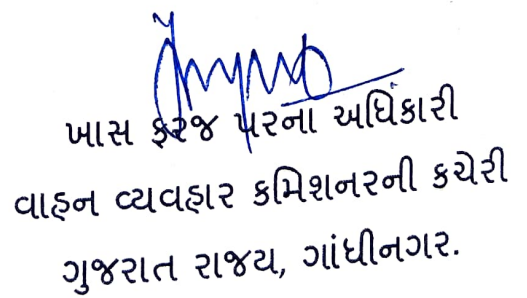 ખાસ ફરજ પરના અધિકારી
વાહન વ્યવહાર કમિશનરની કચેરી
ગુજરાત રાજય, ગાંધીનગર.